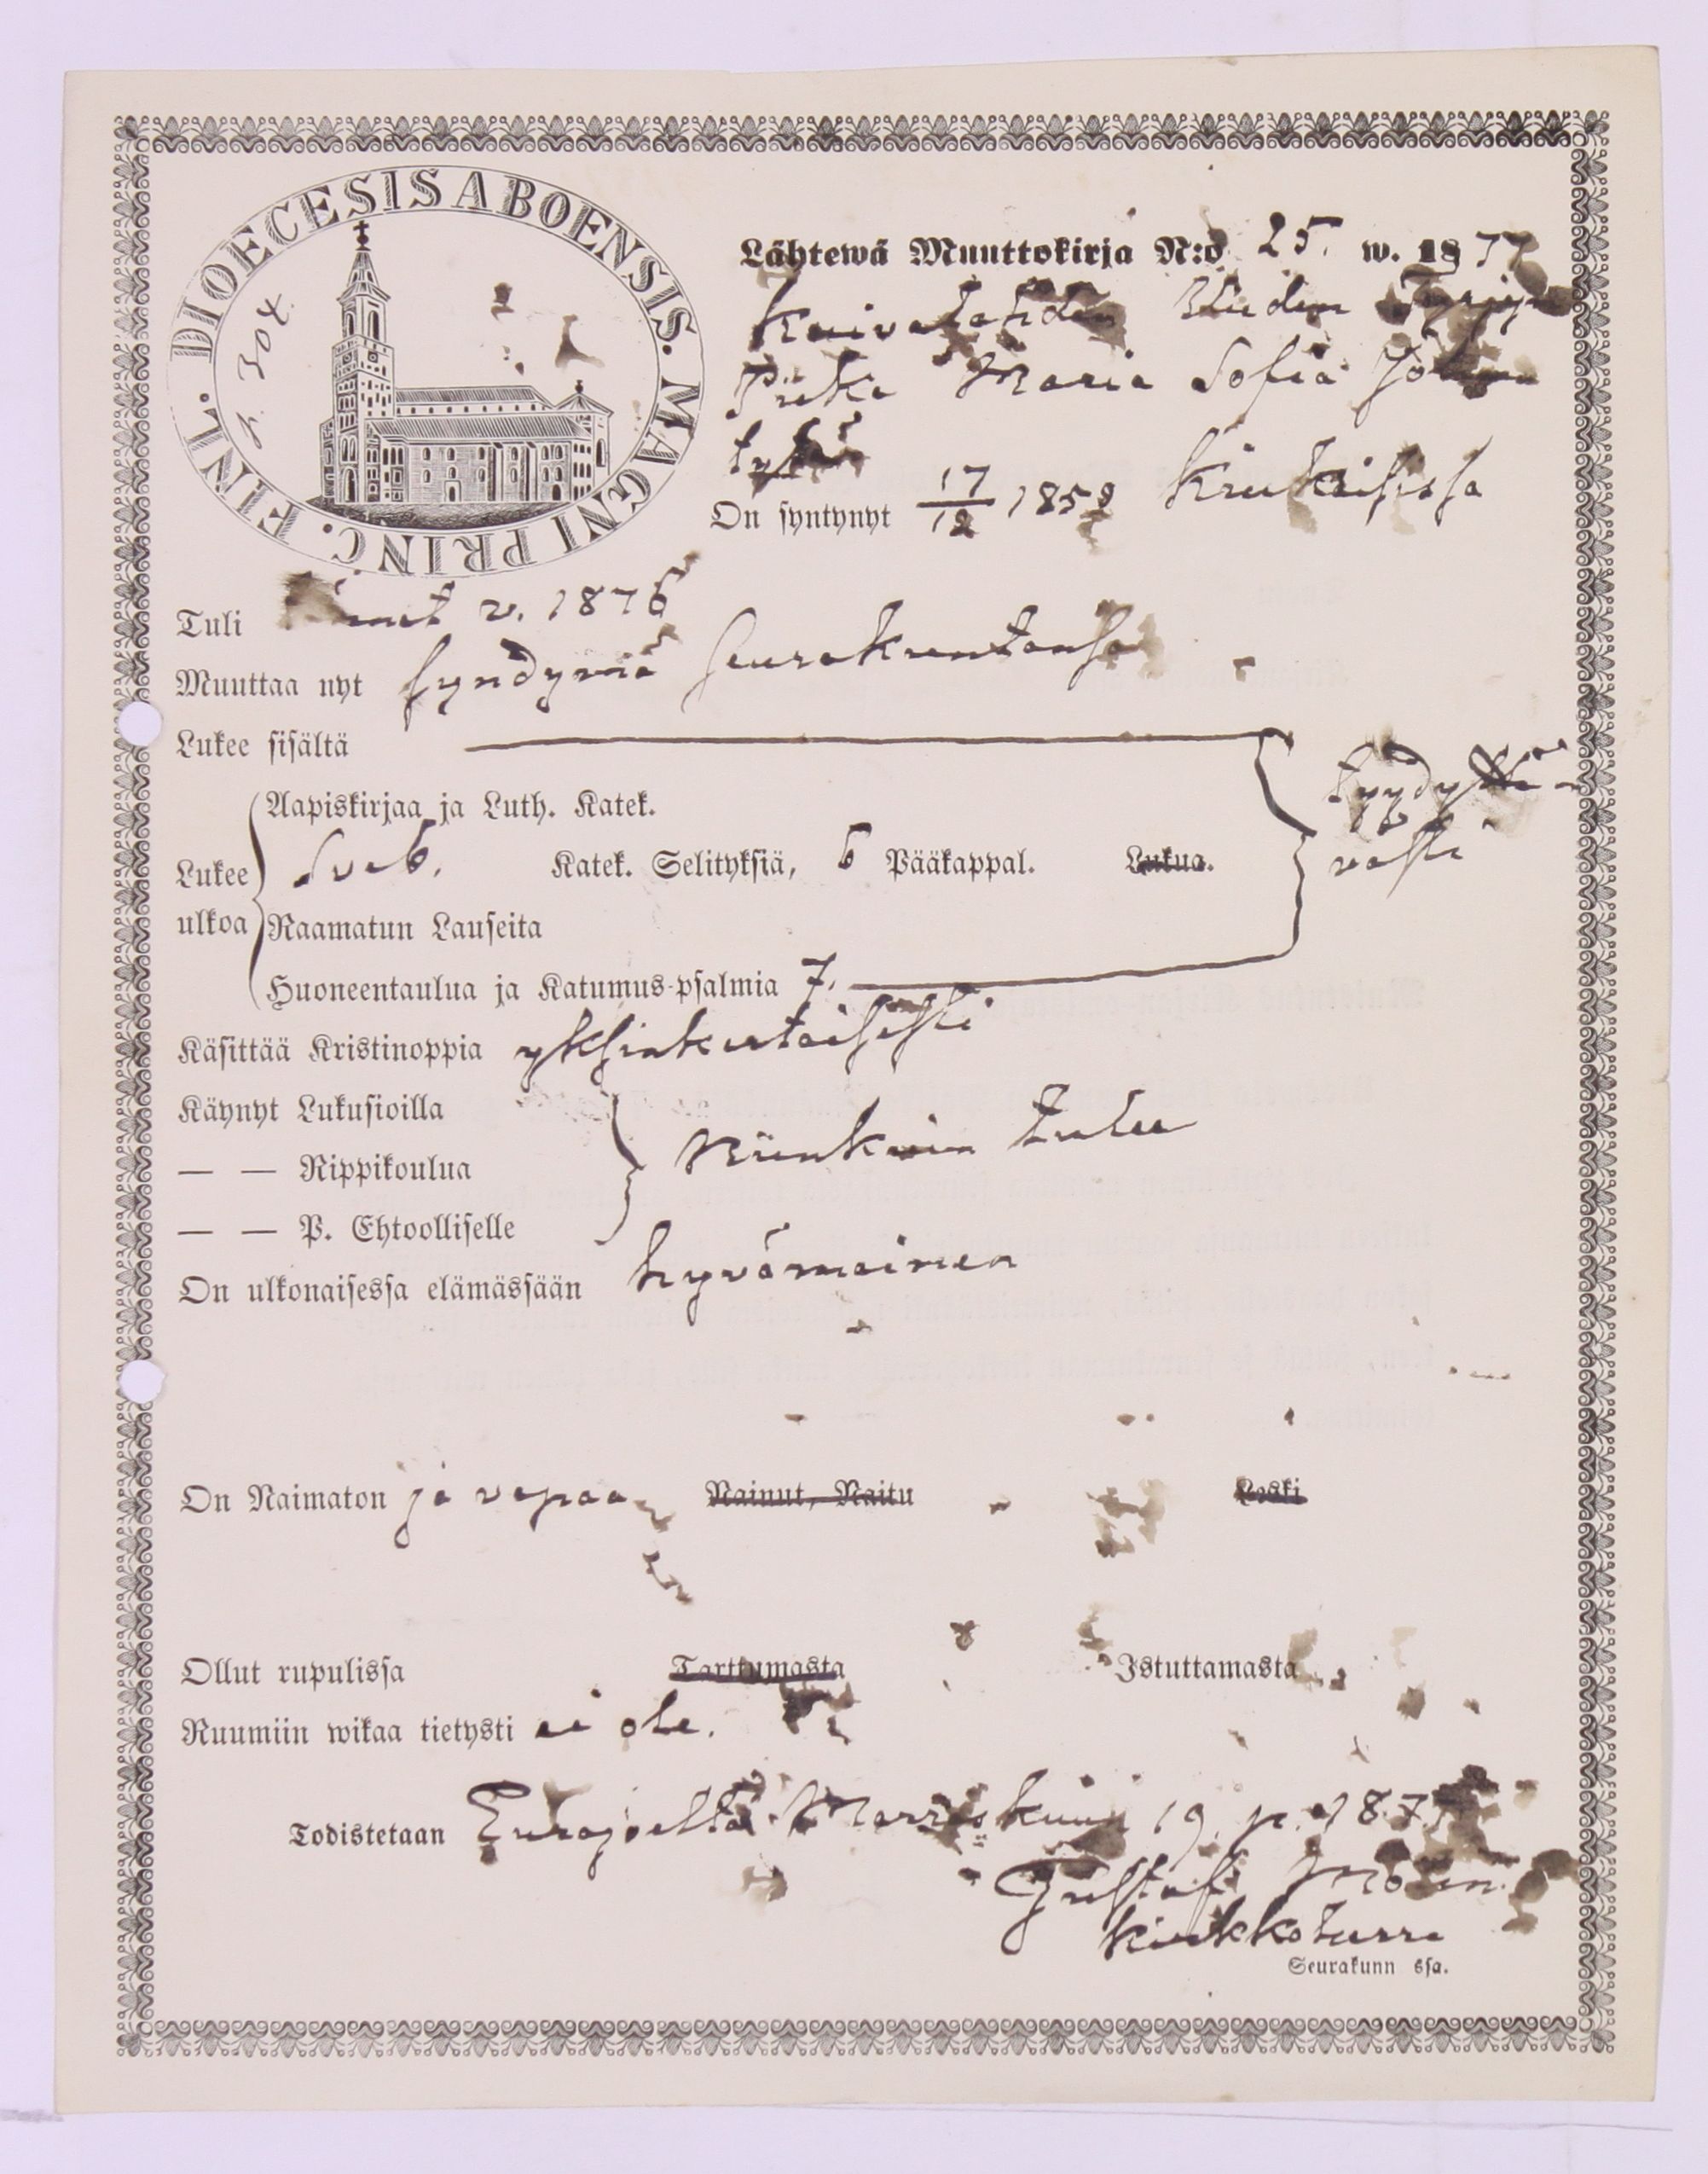 DIOECESIS ABOENSIS. MAGNI PRINC. FINL.
s. 304.
Lähtewä Muuttokirja N:o 25. w. 1877
Kuivalahden Uuden
Piika Maria Sofia
On syntynyt 17/12 1858 Kiukaisissa
Tuli v. 1876
Muuttaa nyt syndymä seurakuntansa
Lukee sisältä
tyydyttä-
västi
Aapiskirjaa ja Luth. Katek.
Lukee ulkoa
Sveb. Katek. Selityksiä, 6 Pääkappal. Lukua.
Raamatun Lauseita
Huoneentaulua ja Katumus-psalmia 7.
Käsittää Kristinoppia yksinkertaisesti
Käynyt Lukusioilla
— — Rippikoulua
Niinkuin tulee
— — P. Ehtoolliselle
On ulkonaisessa elämässään hyvämainen
On Naimaton ja vapaa Nainut, Naitu Leski
Ollut rupulissa Tarttumasta Istuttamasta
Ruumiin wikaa tietysti ei ole.
Todistetaan Eurajoelta Marraskuun 19 p. 187
Gustaf
kirkkoherra
Seurakunn ssa.